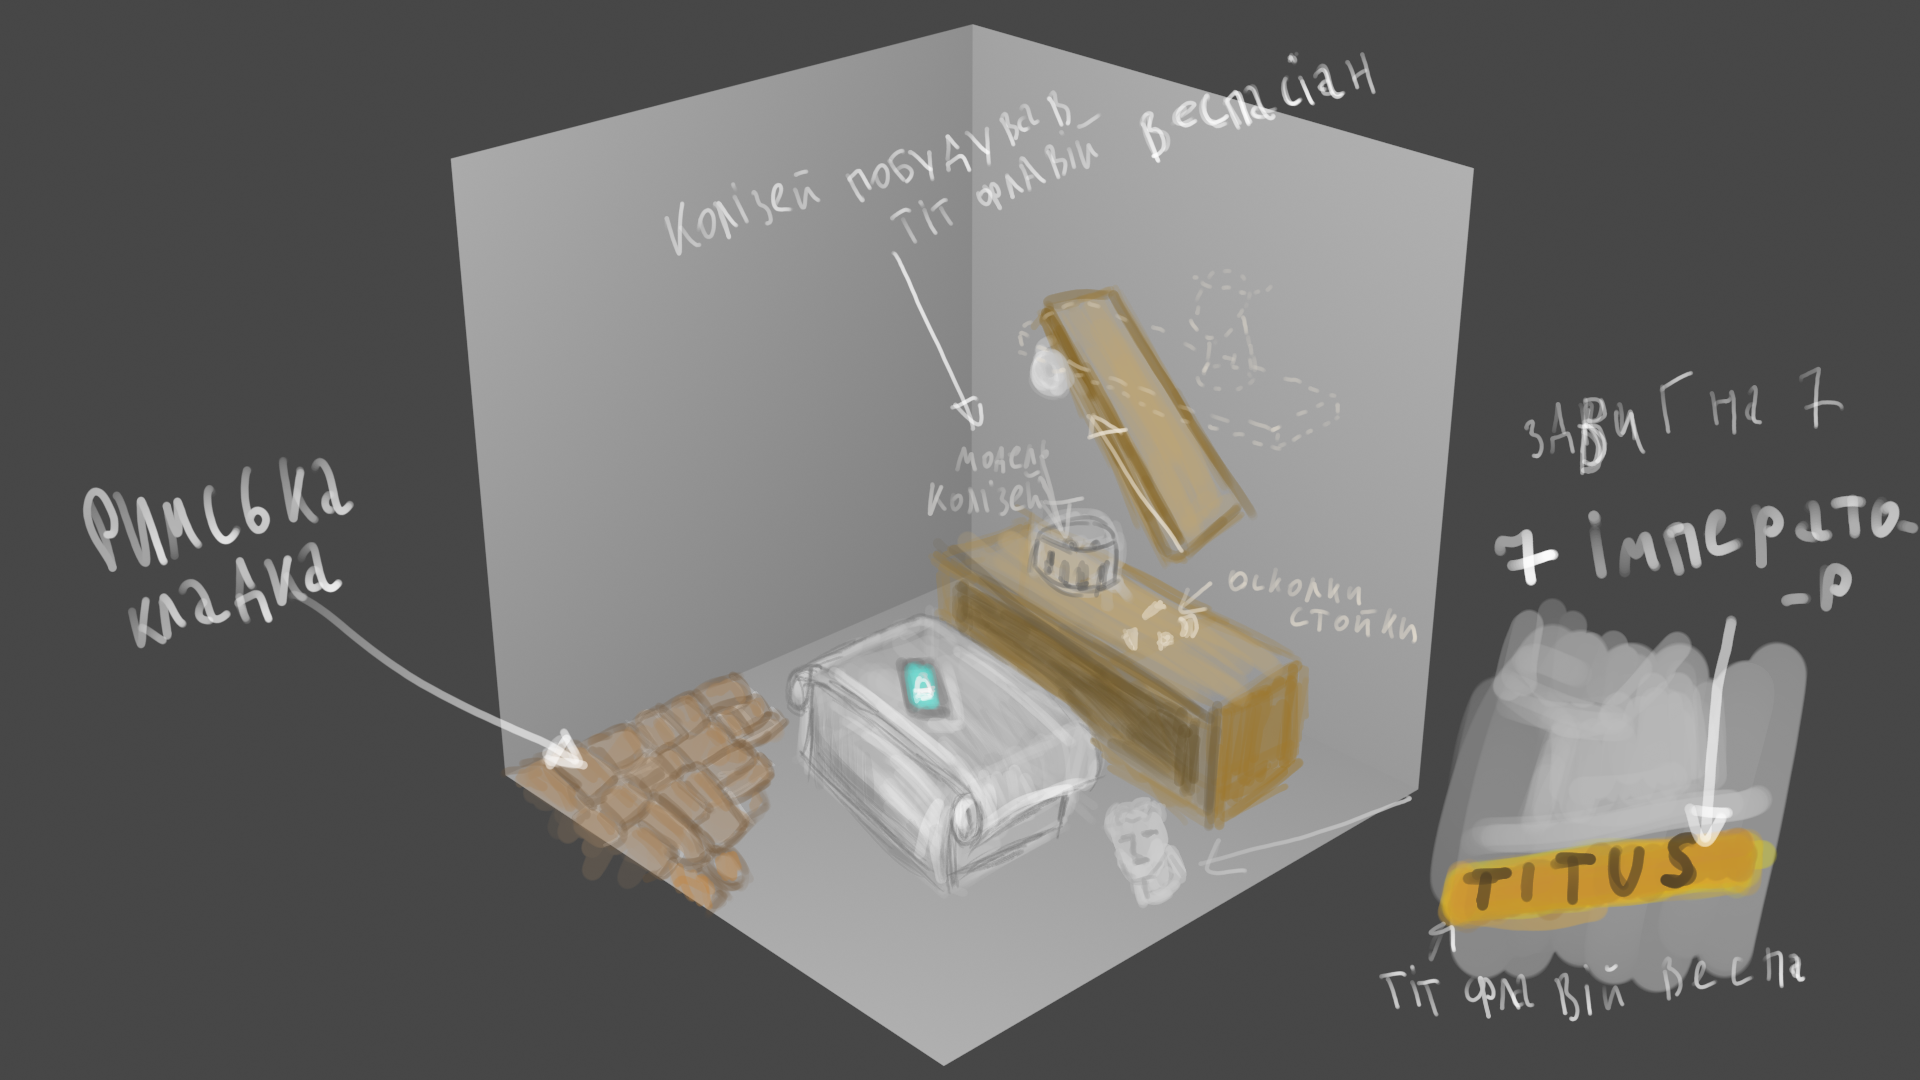 Колізей побудував
Тіт Флавій Веспасіан
модель
Колізей
осколки
стойки
Римська
кладка
здвиг на 7
7 імперато-
-р
TITUS
Тіт Флавій Веспа